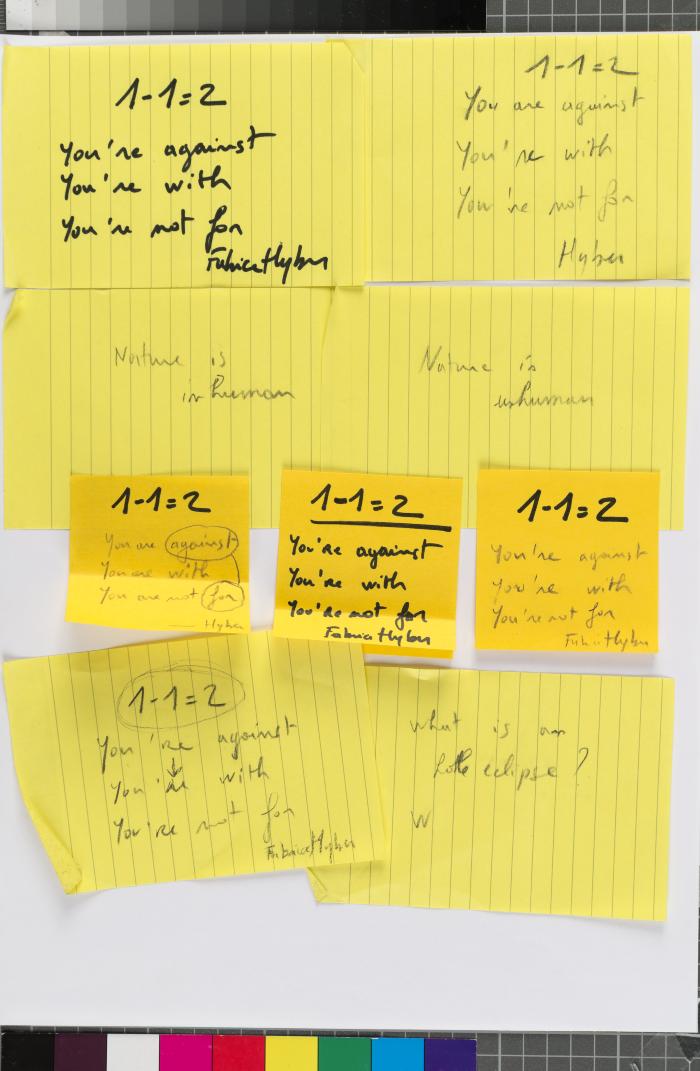 1-1=2
You're against
You're with
You're not for
Fabrice Hyber
1-1=2
You are against
You're with
You're not for
Hyber
Nature is
inhuman
Nature is
unhuman
1-1=2
You are against
You are with
You are not for
Hyber
1-1=2
You're against
You're with
You're not for
Fabrice Hyber
1-1=2
You're against
You're with
You're not for
Fabrice Hyber
1-1=2
You're against
You're with
You're not for
Fabrice Hyber
What is an
eclipse?
W